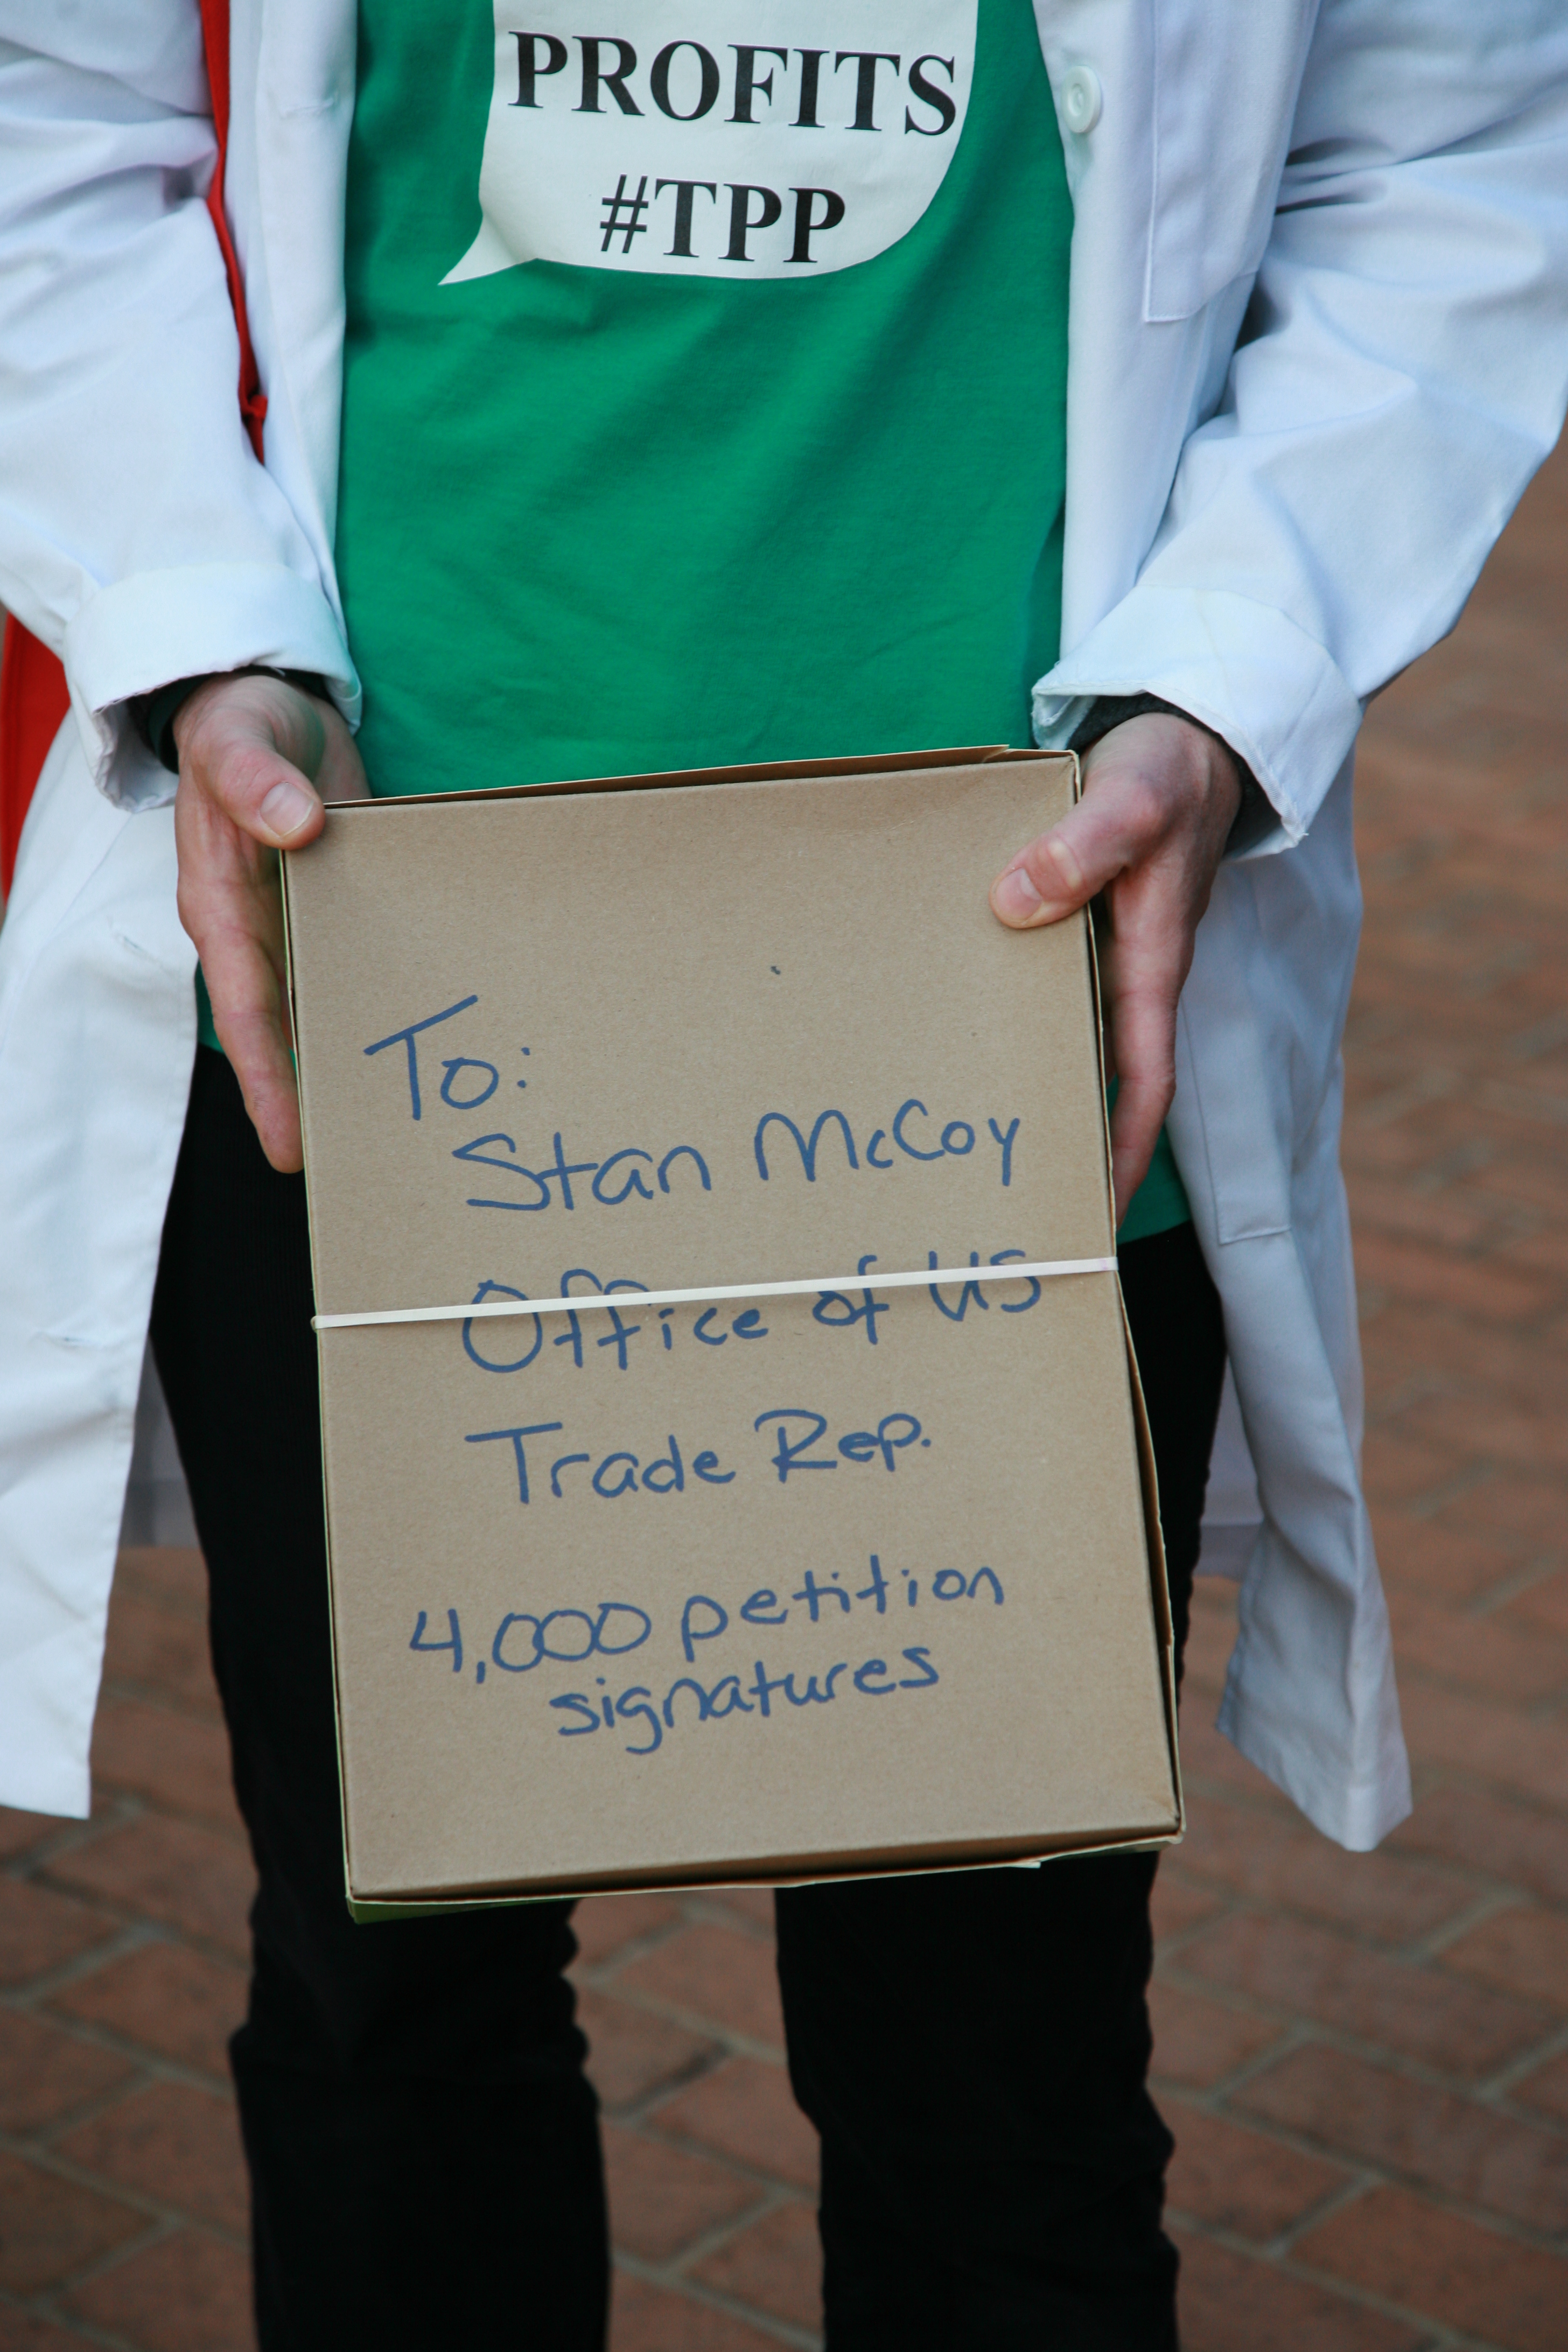 PROFITS
#TPP
To:
Stan McCoy
Office of US
Trade Rep.
4,000 petition
signatures